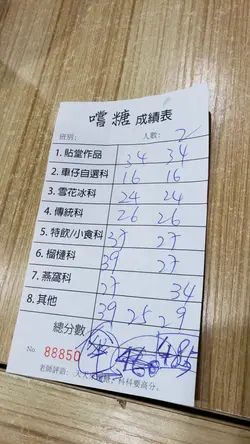 嚐糖 成績表
班別: 人數: 2/
1. 貼堂作品 34 34
2. 車仔自選科 16 16
3. 雪花冰科 24 24
4. 傳統科 26 26
5. 特飲/小食科 27 27
6. 榴槤科 39 27
7. 燕窩科 27 34
8. 其他 39 25 29
總分數 485
No. 88850
老師評語: 科科要高分。